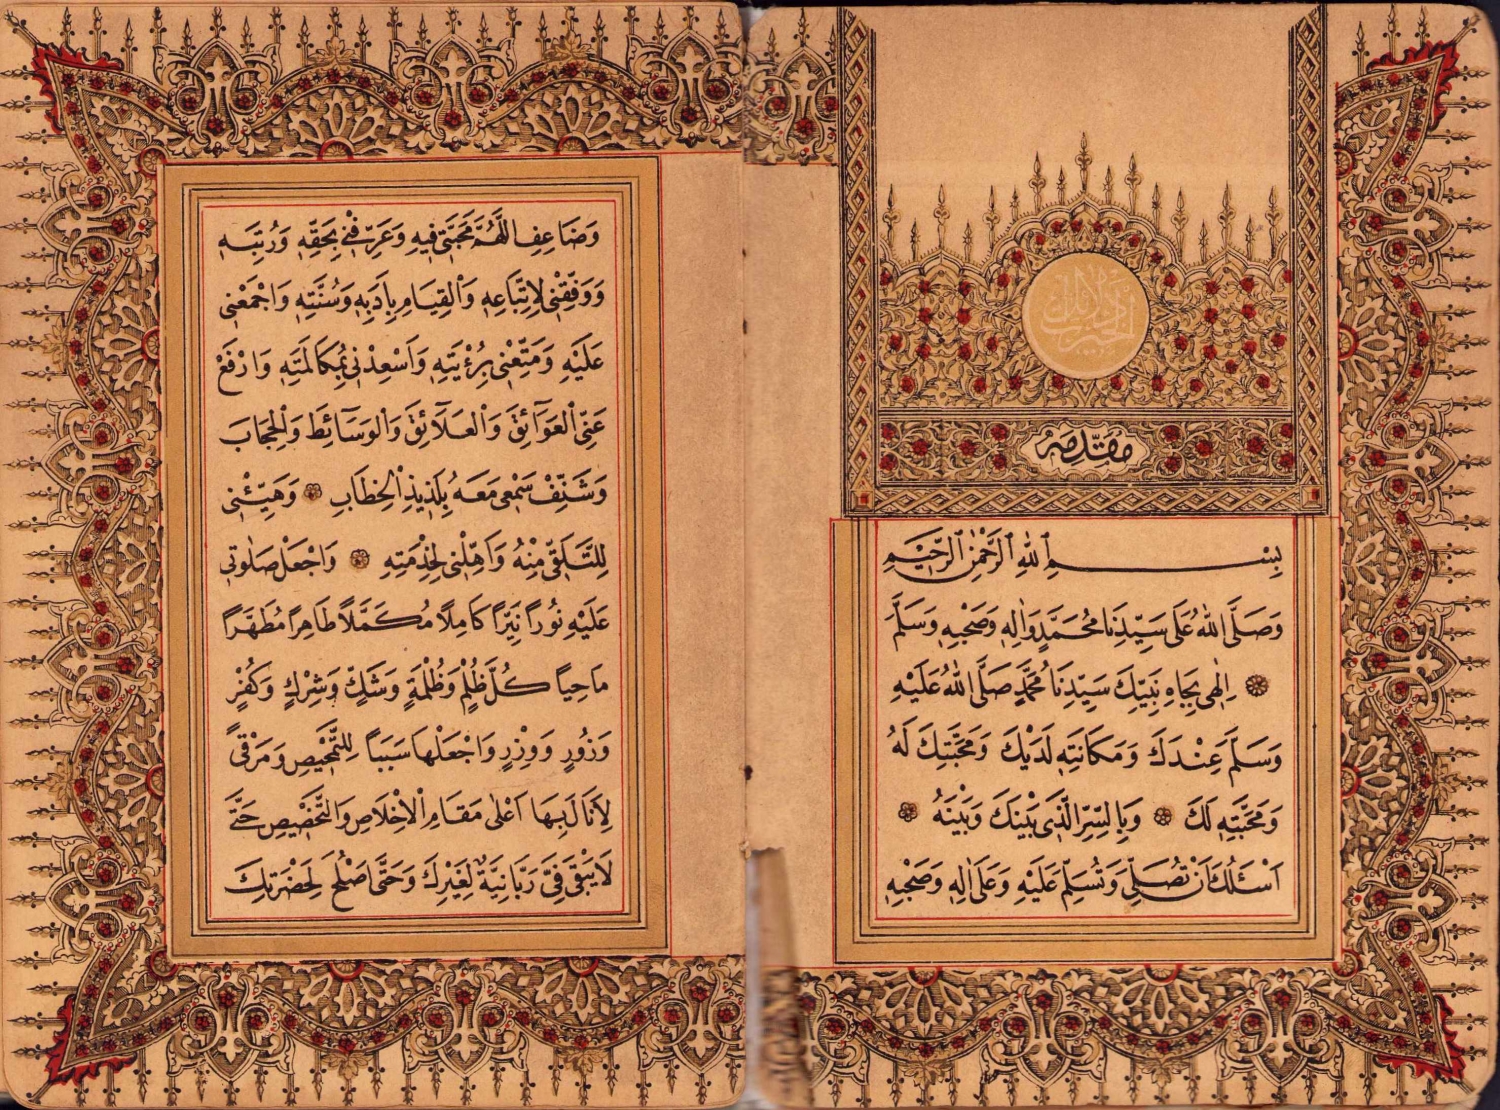 دلائل الخيرات
مقدمه
بِسْمِ اللهِ الرَّحْمٰنِ الرَّحِيْمِ
وَصَلَّى اللهُ عَلٰى سَيِّدِنَا مُحَمَّدٍ وَاٰلِهٖ وَصَحْبِهٖ وَسَلَّمَ
اِلٰهِى بِجَاهِ نَبِيِّكَ سَيِّدِنَا مُحَمَّدٍ صَلَّى اللهُ عَلَيْهِ
وَسَلَّمَ عِنْدَكَ وَمَكَانَتِهٖ لَدَيْكَ وَمَحَبَّتِكَ لَهُ
وَمَحَبَّتِهٖ لَكَ وَبِالسِّرِّ الَّذِى بَيْنَكَ وَبَيْنَهُ
اَسْئَلُكَ اَنْ تُصَلِّىَ وَتُسَلِّمَ عَلَيْهِ وَعَلٰى اٰلِهٖ وَصَحْبِهٖ
وَضَاعِفِ اللّٰهُمَّ مَحَبَّتِى فِيهِ وَعَرِّفْنِى بِحَقِّهٖ وَرُتَبِهٖ
وَوَفِّقْنِى لِاِتِّبَاعِهٖ وَالْقِيَامِ بِاَدَبِهٖ وَسُنَّتِهٖ وَاجْمَعْنِى
عَلَيْهِ وَمَتِّعْنِى بِرُؤْيَتِهٖ وَاَسْعِدْنِى بِمُكَالَمَتِهٖ وَارْفَعْ
عَنِّى الْعَوَآئِقَ وَالْعَلَآئِقَ وَالْوَسَآئِطَ وَالْحِجَابَ
وَشَنِّفْ سَمْعِى مَعَهُ بِلَذِيذِ الْخِطَابِ وَهَيِّئْنِى
لِلتَّلَقِّى مِنْهُ وَاَهِّلْنِى لِخِذْمَتِهٖ وَاجْعَلْ صَلٰوتِى
عَلَيْهِ نُورًا نَيِّرًا كَامِلًا مُكَمَّلًا طَاهِرًا مُطَهَّرًا
مَاحِيًا كُلَّ ظُلْمٍ وَظُلْمَةٍ وَشَكٍّ وَشِرْكٍ وَكُفْرٍ
وَزُورٍ وَوِزْرٍ وَاجْعَلْهَا سَبَبًا لِلتَّمْحِيصِ وَمَرْقًى
لِاَنَالَ بِهَا اَعْلٰى مَقَامِ الْاِخْلَاصِ وَالتَّخْصِيصِ حَتّٰى
لَا يَبْقٰى فِىَّ رَبَّانِيَّةٌ لِغَيْرِكَ وَحَتّٰى اَصْلُحَ لِحَضْرَتِكَ